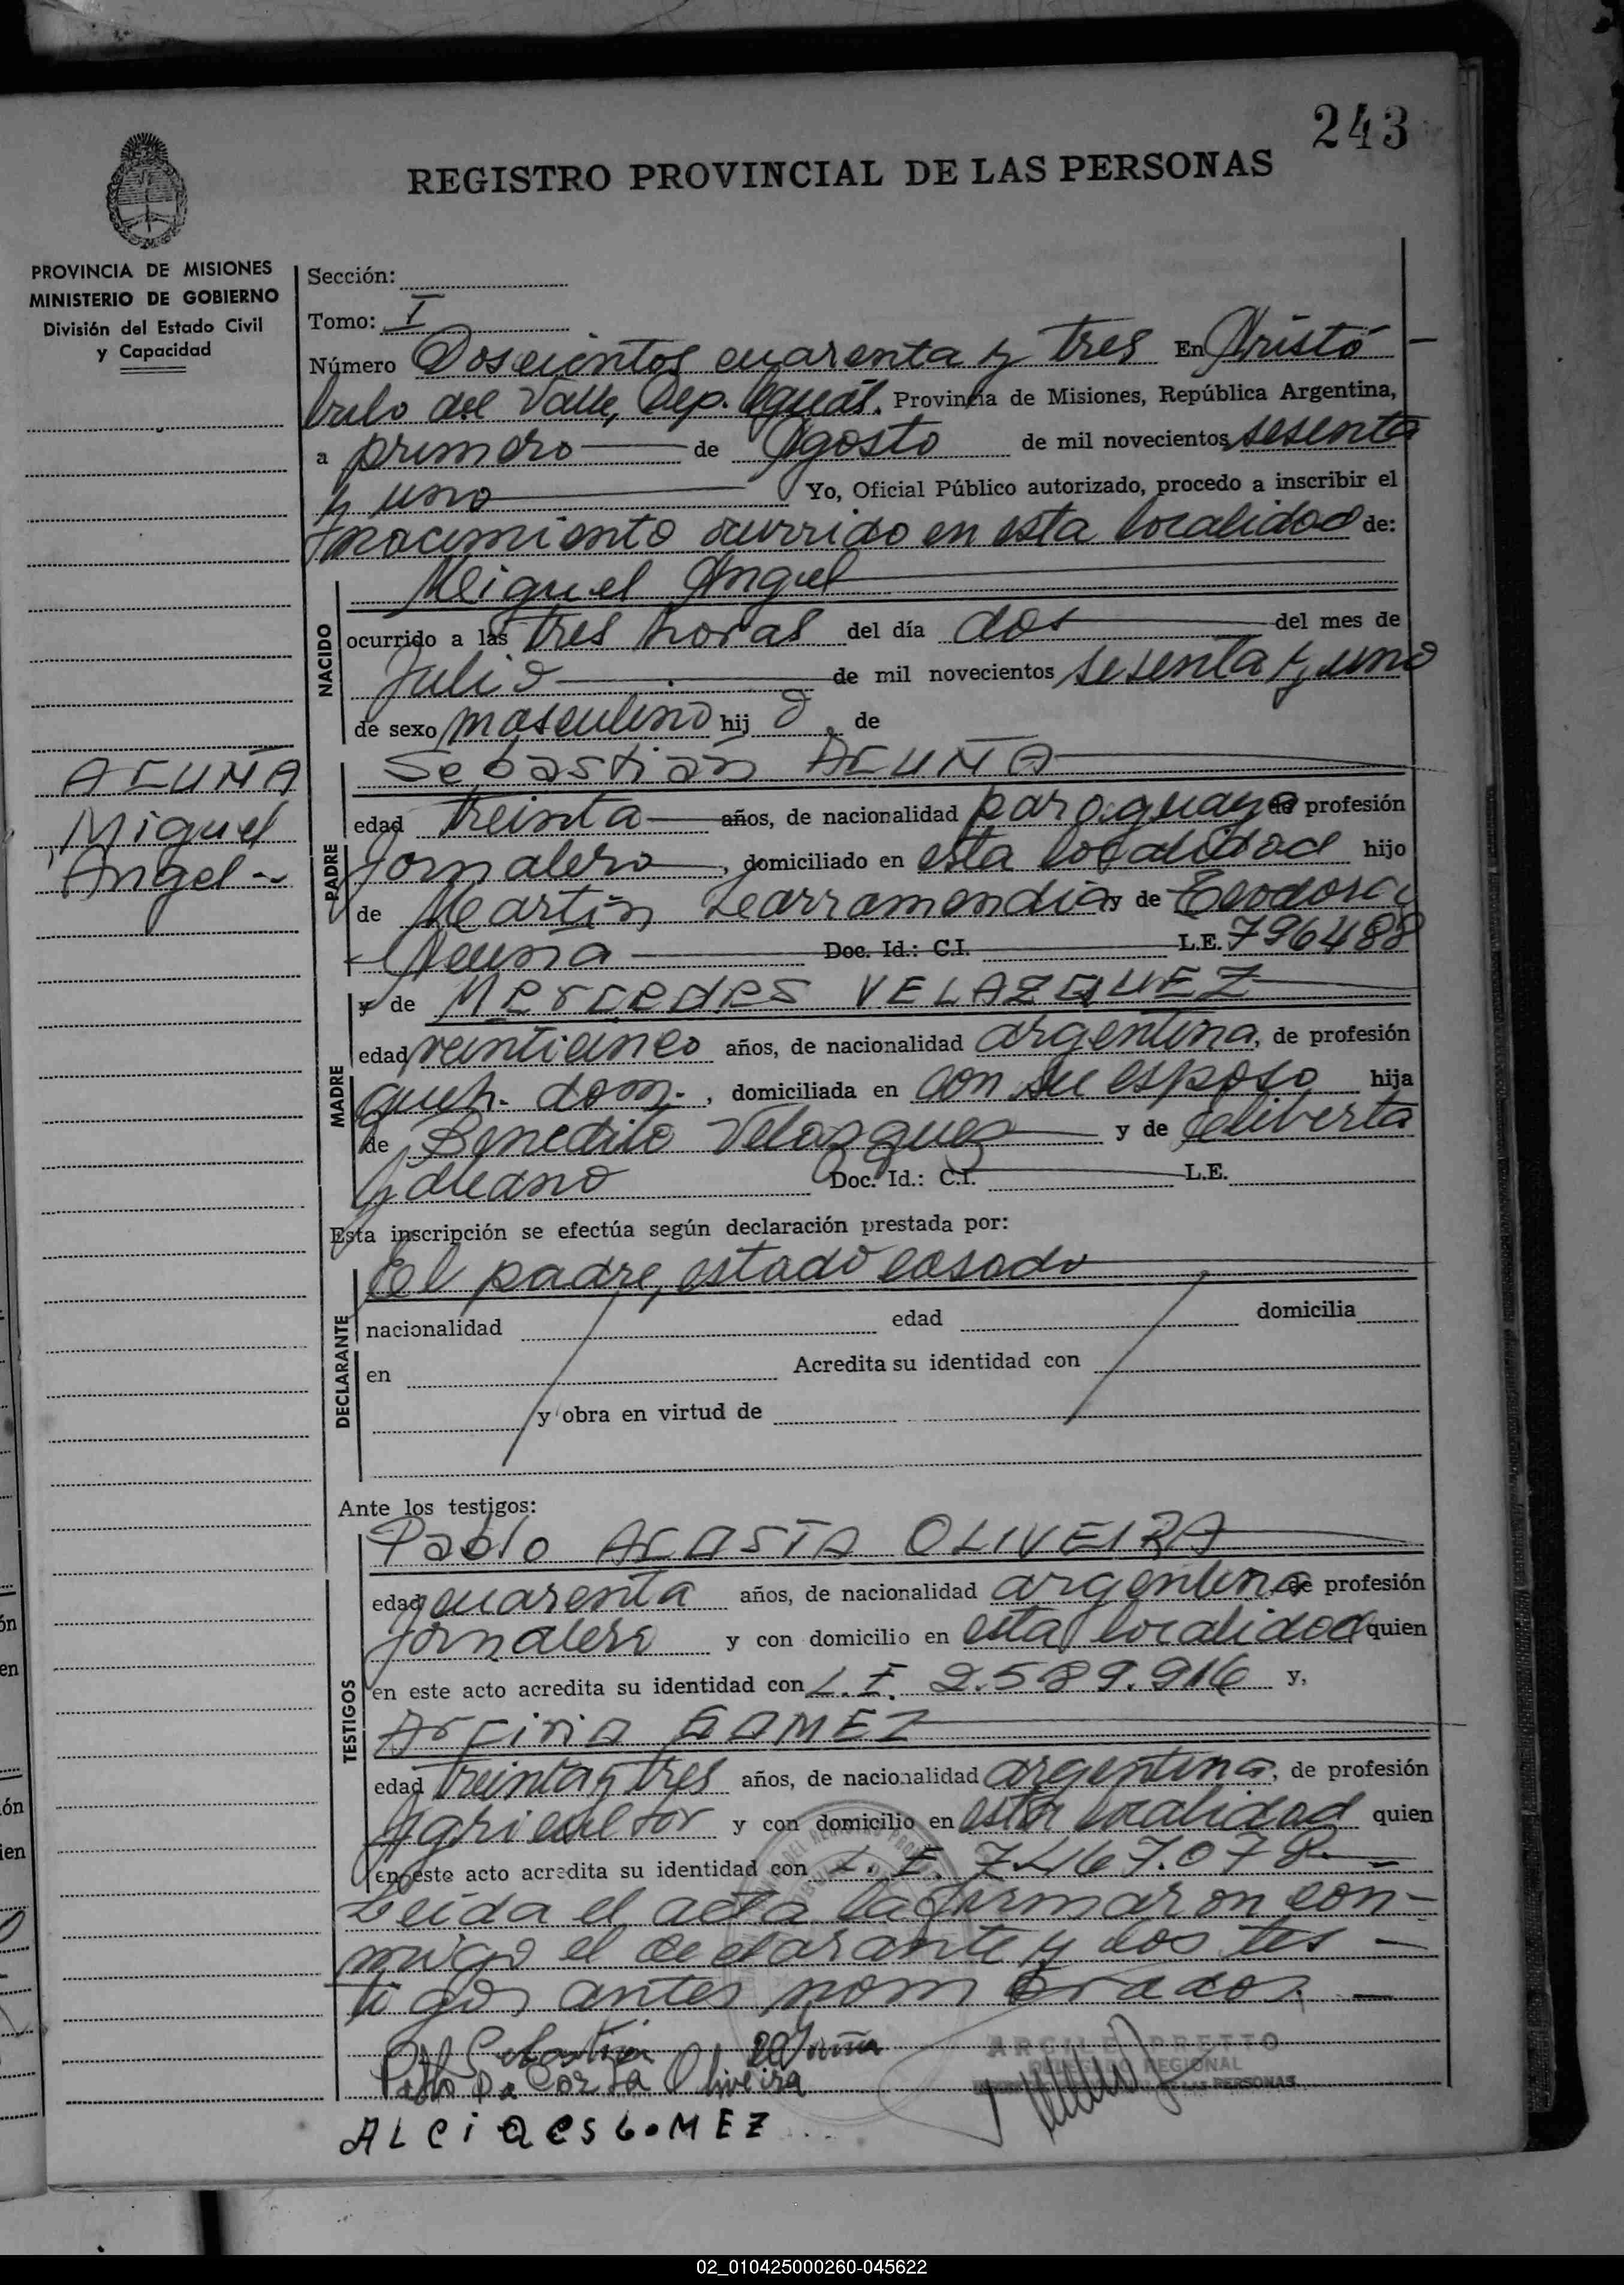 243
REGISTRO PROVINCIAL DE LAS PERSONAS
PROVINCIA DE MISIONES
MINISTERIO DE GOBIERNO
División del Estado Civil
y Capacidad
Sección:
Tomo: I
Número Doscientos cuarenta y tres En Aristó-
bulo del Valle, Dep. Cguás. Provincia de Misiones, República Argentina,
a primero de Agosto de mil novecientos sesenta
y uno Yo, Oficial Público autorizado, procedo a inscribir el
nacimiento ocurrido en esta localidad de:
NACIDO
Miguel Angel
ocurrido a las tres horas del día dos del mes de
Julio de mil novecientos sesenta y uno
de sexo masculino hij o de
ACUÑA
Miguel
Angel -
PADRE
Sebastián ACUÑA
edad treinta años, de nacionalidad paraguaya de profesión
Jornalero, domiciliado en esta localidad hijo
de Martín Larramendia y de Teodora
Acuña Doc. Id.: C.I. L.E. 796488
MADRE
y de Mercedes VELAZQUEZ
edad veinticinco años, de nacionalidad argentina, de profesión
queh. dom., domiciliada en con su esposo hija
de Benedito Velazquez y de Feliberta
Galeano Doc. Id.: C.I. L.E.
Esta inscripción se efectúa según declaración prestada por:
DECLARANTE
El padre, estado casado
nacionalidad edad domicilia
en Acredita su identidad con
y obra en virtud de
Ante los testigos:
TESTIGOS
Pablo ACOSTA OLIVEIRA
edad cuarenta años, de nacionalidad argentina de profesión
Jornalero y con domicilio en esta localidad quien
en este acto acredita su identidad con L.E. 2.589.916 y,
GOMEZ
edad treinta y tres años, de nacionalidad argentina, de profesión
Agricultor y con domicilio en esta localidad quien
en este acto acredita su identidad con L.E. 7.467.078.-
Leída el acta la firmaron con-
migo el declarante y los tes-
tigos antes nombrados.-
Sebastian Acuña
Pablo Da Costa Oliveira
DELEGADO REGIONAL
DE LAS PERSONAS
ALCiDES GOMEZ
02_010425000260-045622